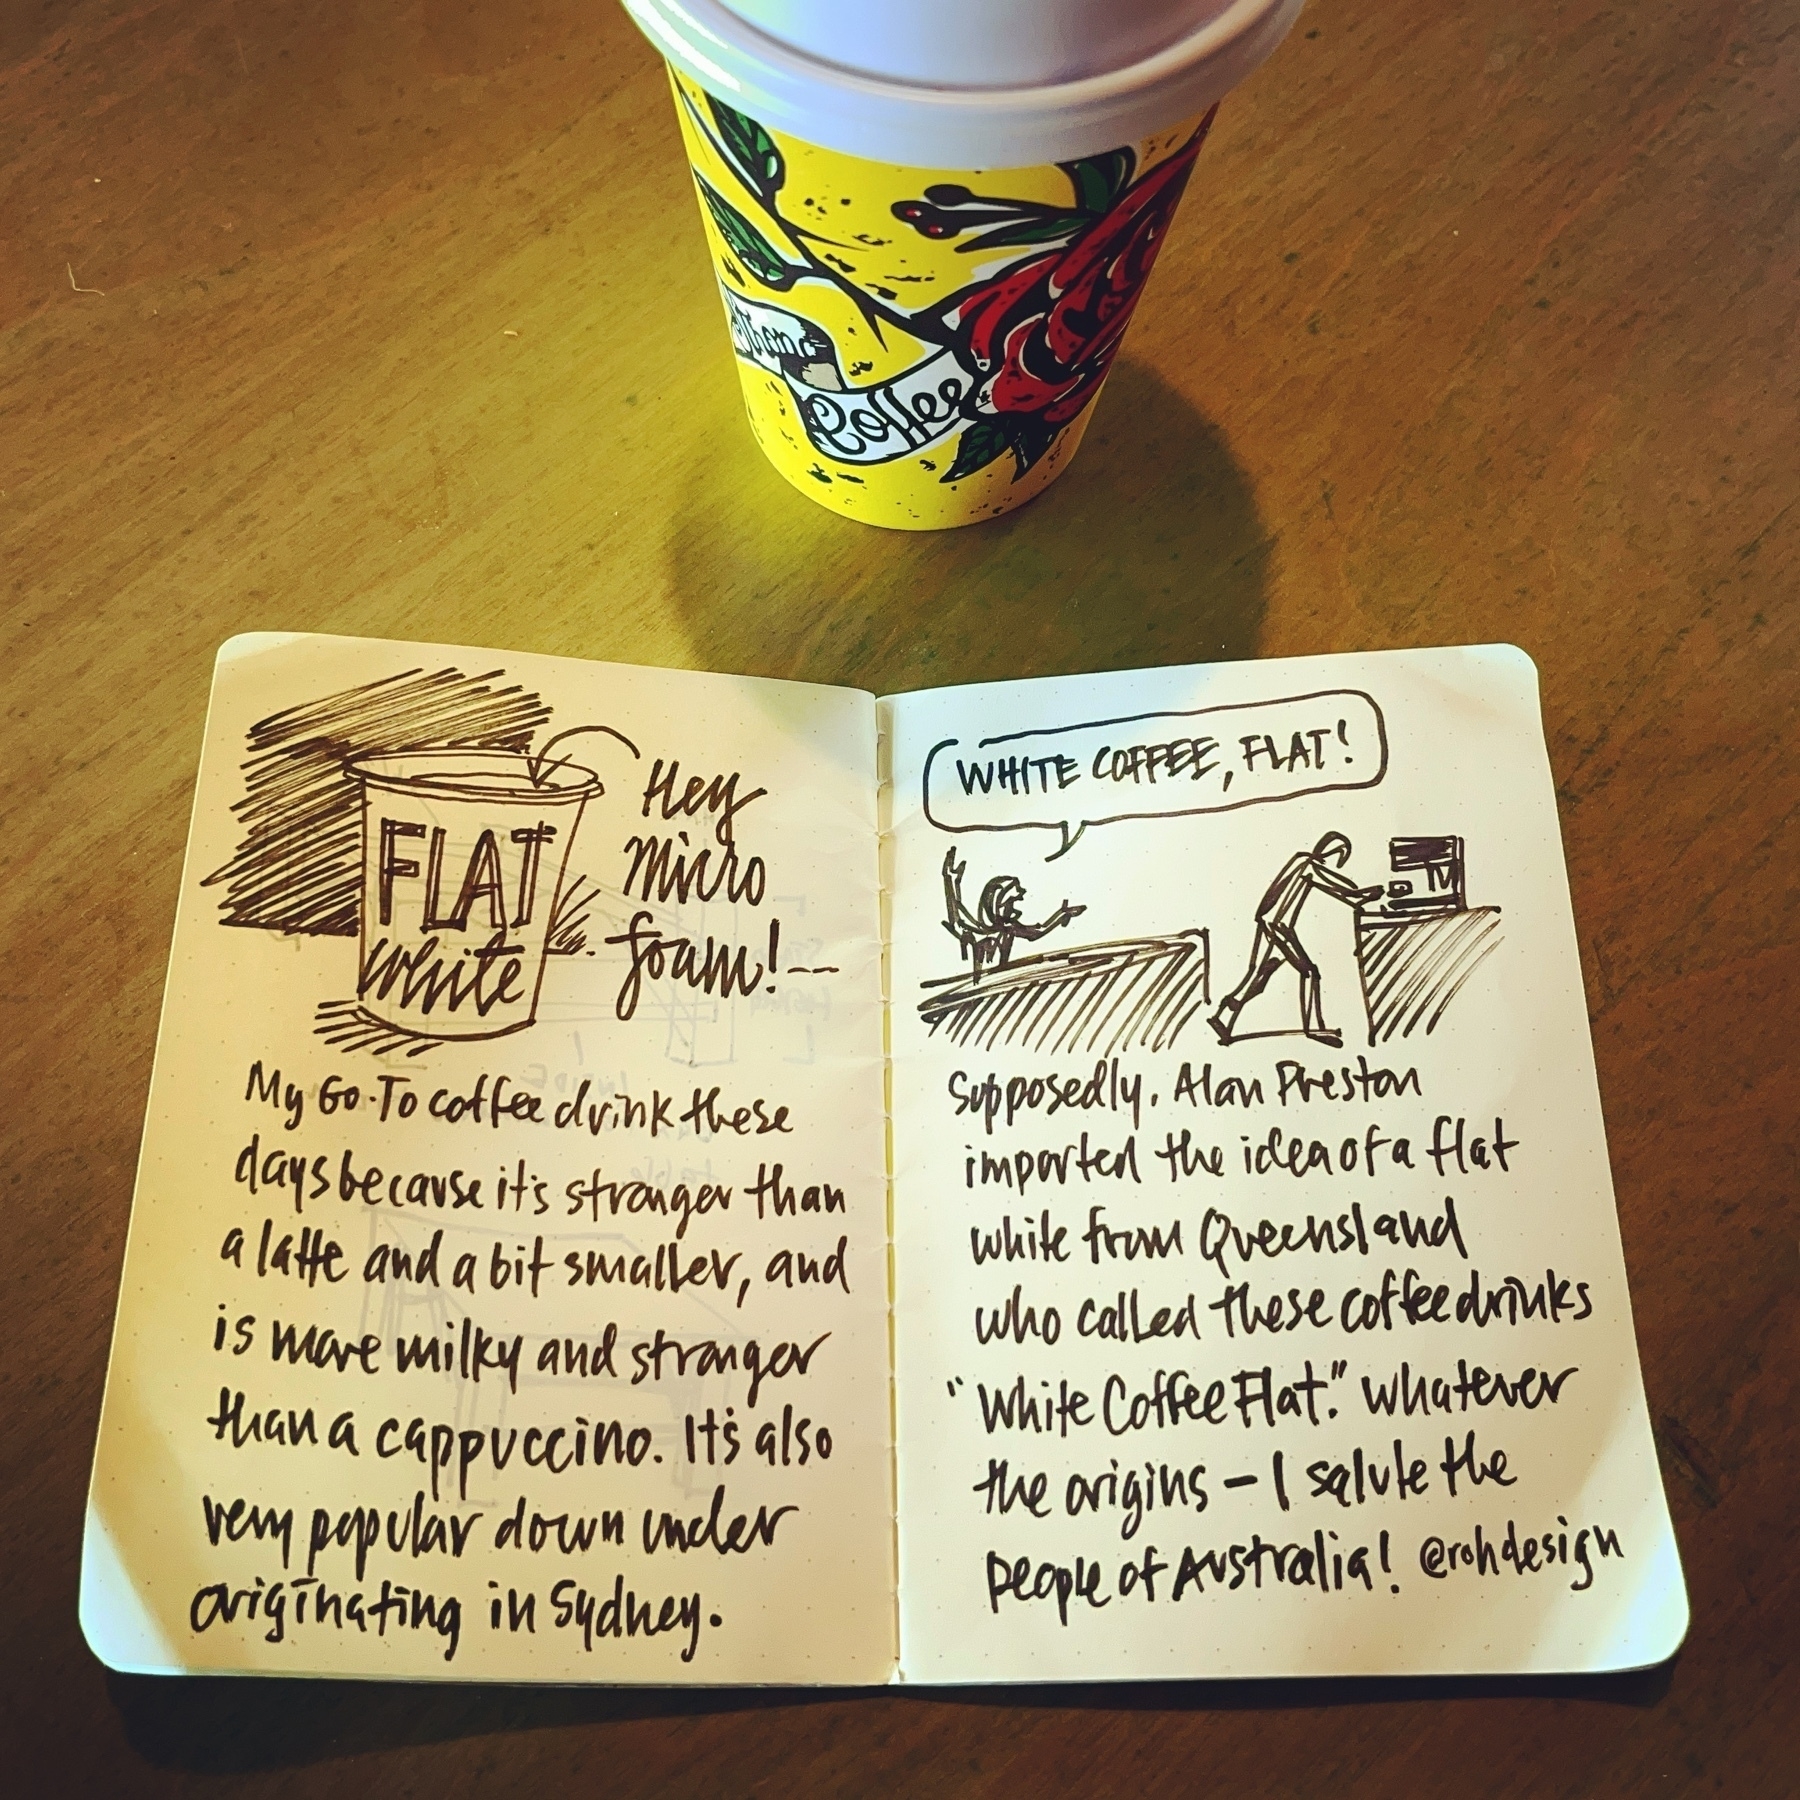 Coffee
FLAT
white
Hey
Micro
foam!--
My Go-To coffee drink these
days because it's stronger than
a latte and a bit smaller, and
is more milky and stronger
than a cappuccino. It's also
very popular down under
originating in Sydney.
WHITE COFFEE, FLAT!
Supposedly, Alan Preston
imported the idea of a flat
white from Queensland
who called these coffee drinks
"White Coffee Flat." Whatever
the origins — I salute the
people of Australia! @rohdesign